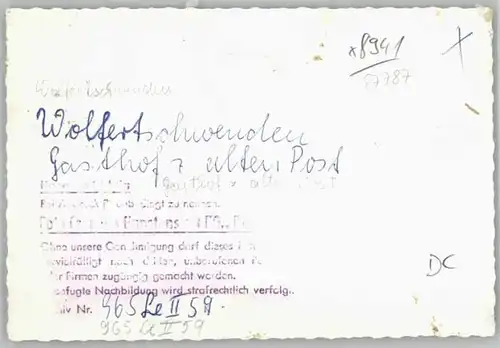 x8941
87787
Wolfertschwenden
Wolfertschwenden
Gasthof z alten Post
Gasthof z alten Post
Ohne unsere Genehmigung darf dieses
vervielfältigt noch dritten, unberufenen
oder Firmen zugängig gemacht werden.
Unbefugte Nachbildung wird strafrechtlich verfolgt.
Archiv Nr. 965 Le II 59
965 Le II 59
DC